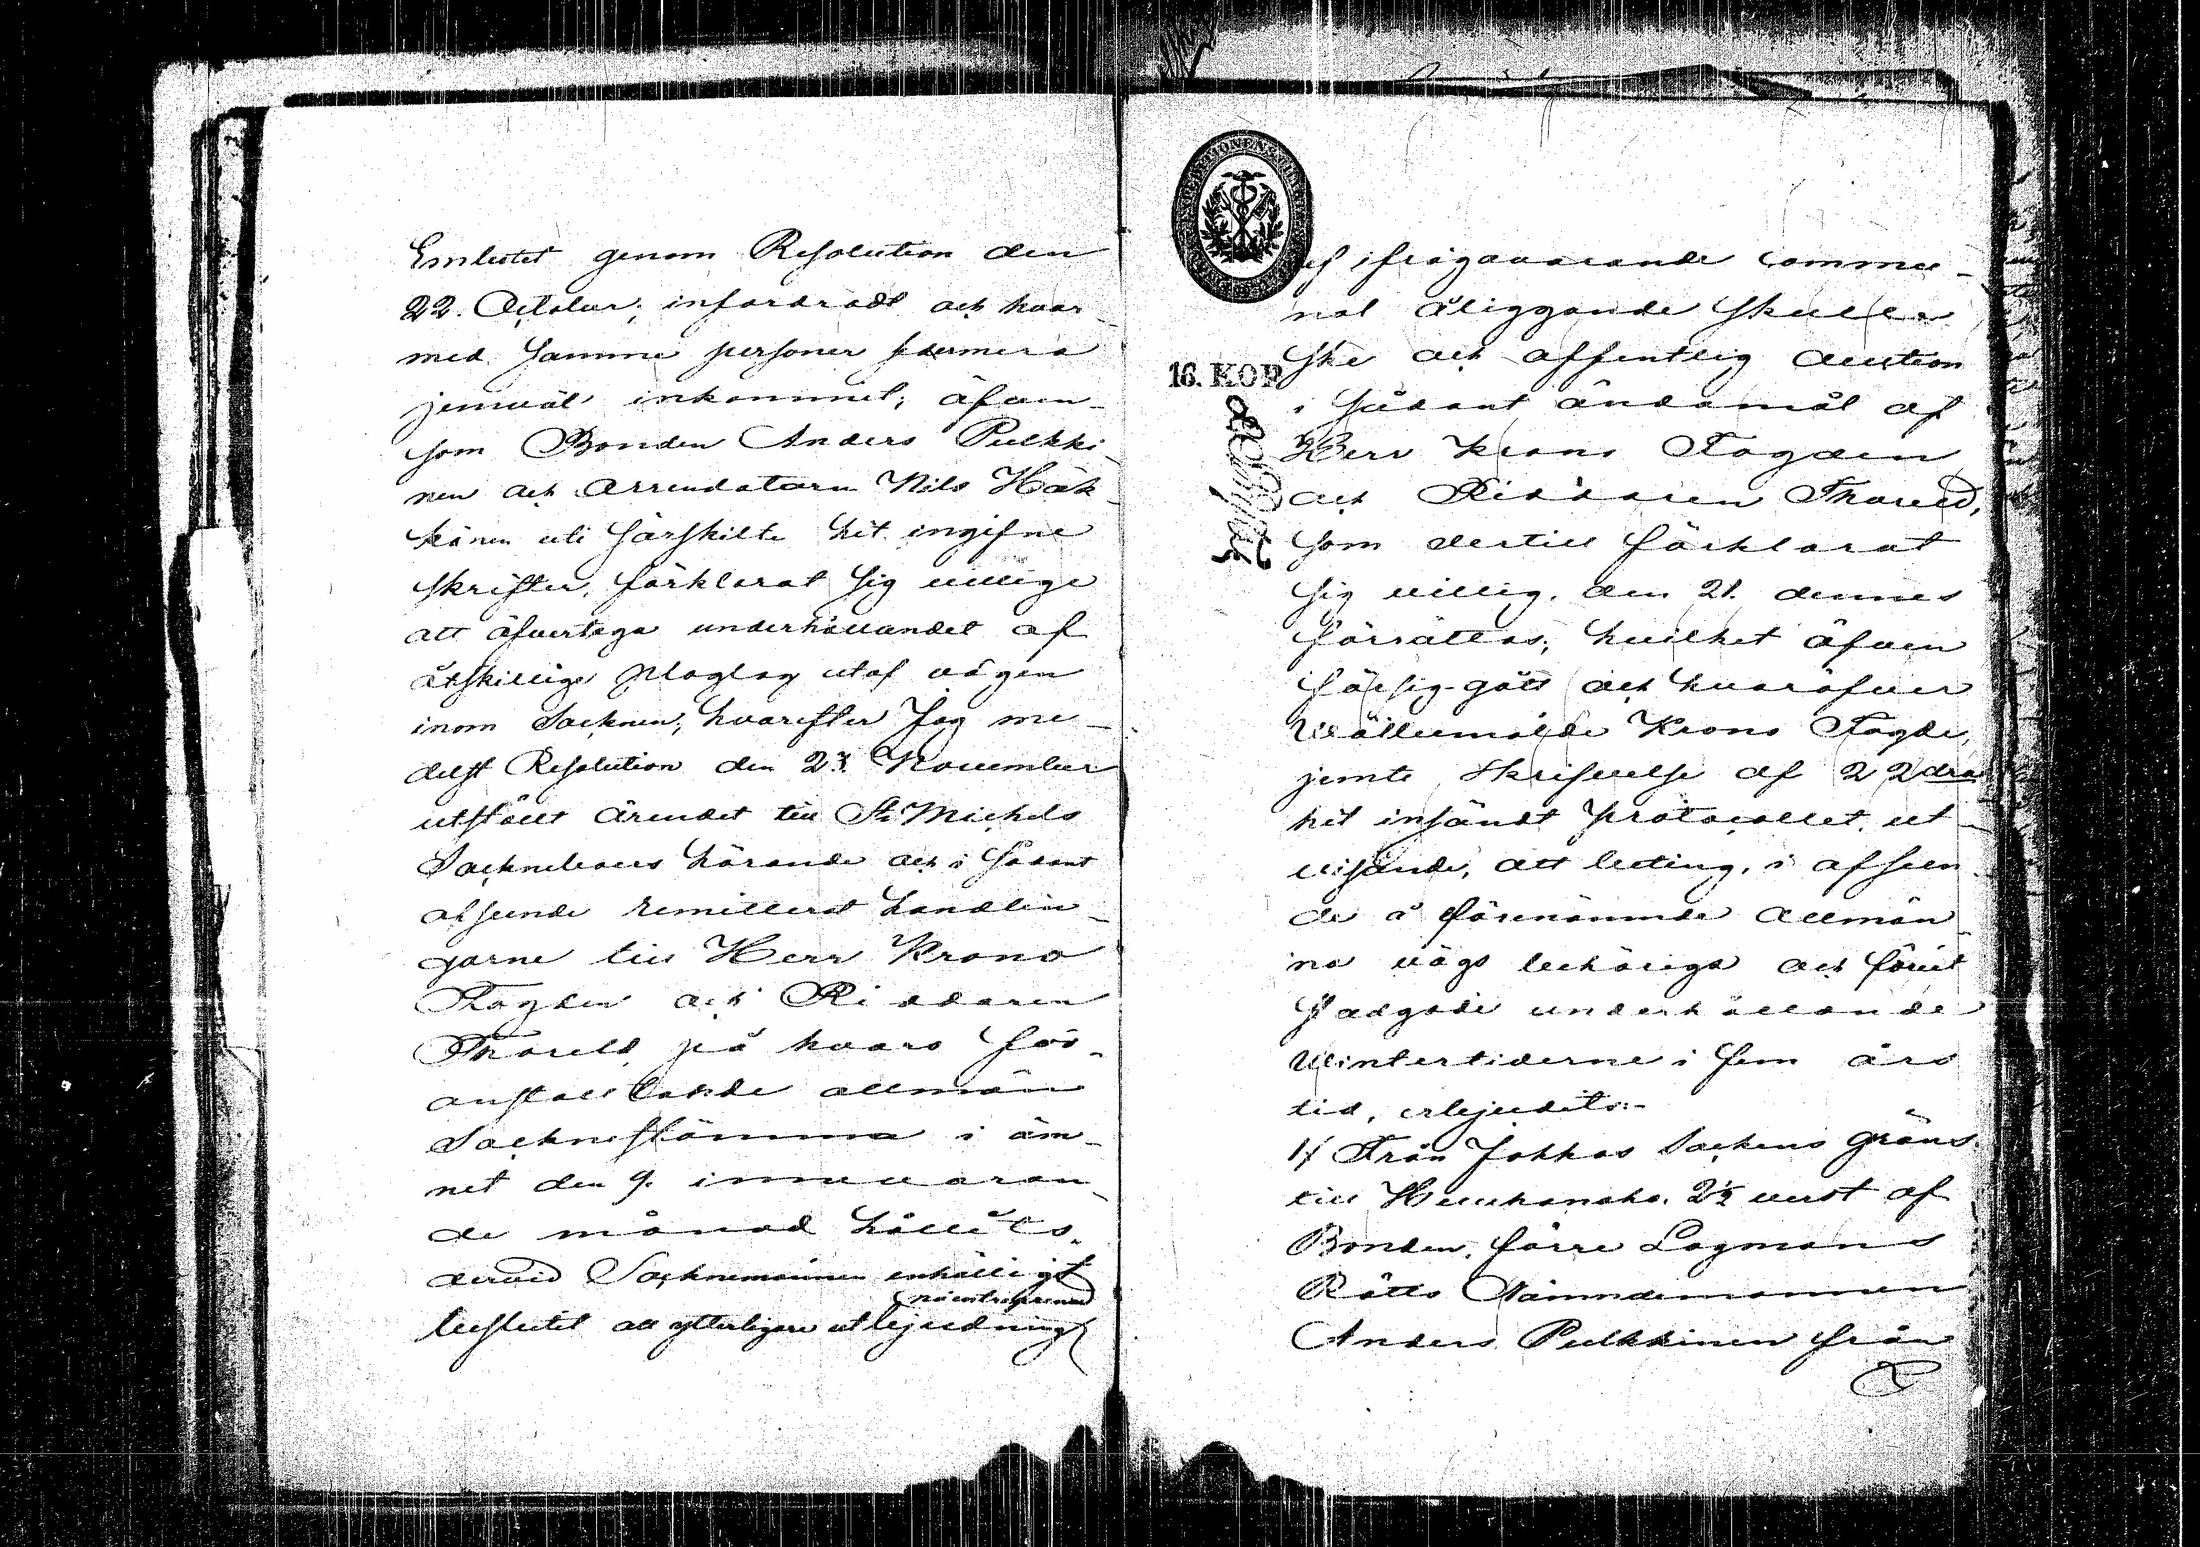 Embetet genom Resolution den
22. October, infordradt och hvar-
med samme personer sedermera
jemväl inkommit; äfven-
som Bonden Anders Pulkki-
nen och Arrendatorn Nils Häk-
känen uti särskilte hit ingifne
skrifter, förklarat sig villige
att öfvertaga underhållandet af
åtskillige ploglag utaf vägen
inom Socknen; hvarefter Jag me-
delst Resolution den 23. November
utstält ärendet till St Michels
Sockneboers hörande och i sådant
afseende remitterat handlin-
garne till Herr Krono
Fogden och Riddaren
Thoreld på hvars för-
anstaltande allmän
Sockneståmma i äm-
net den 9. innevaran-
de månad hållits,
dervid Socknemännen enhälligt
på entreprenad
beslutit att ytterligare utbjudning
af ifrågavarande commu-
nal åliggande skulle
ske och offentlig auction
i sådant ändamål af
Herr Krono Fogden
och Riddaren Thoreld,
som dertill förklarat
sig villig, den 21. dennes
förrättas; hvilket äfven
försiggått och hvaröfver
Välbemälde Krono Fogde,
jemte skrifvelse af 22dra
hit insändt protocollet, ut-
visande, att beting, i afseen-
de å förenämnde allmän-
na vägs behöriga och
stadgade underhållande
Vintertiderne i fem års
tid, erbjudits:-
1/ Från Jokkas Sockens gräns
till 2½ verst af
Bonden, förre Lagmans
Rätts Nämndemannen
Anders Pulkkinen från
16. KOP